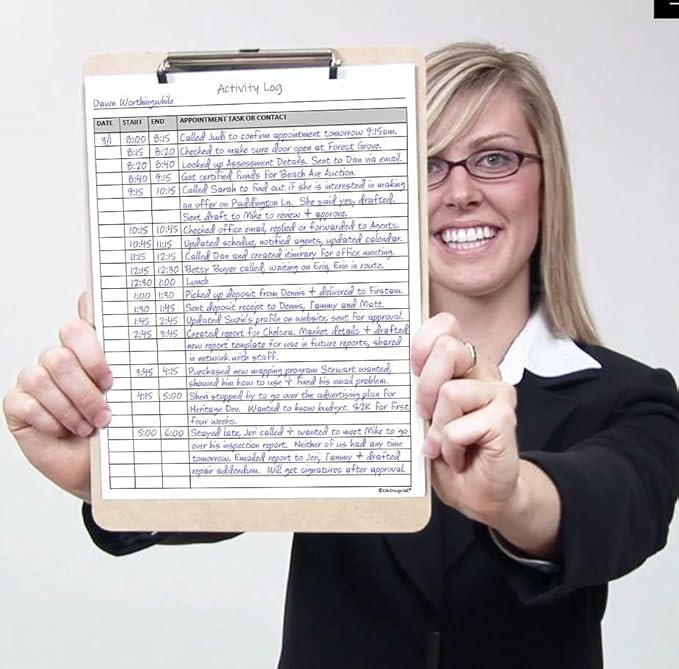 Activity Log
Dawn Worthingwhile
DATE START END APPOINTMENT TASK OR CONTACT
3/1 8:00 8:15 Called Judi to confirm appointment tomorrow 9:15am.
8:15 8:20 Checked to make sure door open at Forest Grove.
8:20 8:40 Looked up Assessment Details. Sent to Dan via email.
8:40 9:15 Got certified funds for Beach Ave Auction.
9:15 10:15 Called Sarah to find out if she is interested in making
an offer on Paddington Ln. She said yes, drafted.
Sent draft to Mike to review + approve.
10:15 10:45 Checked office email, replied or forwarded to Agents.
10:45 11:15 Updated schedue, notified agents, updated calendar.
11:15 12:15 Called Dan and created itinerary for office meeting.
12:15 12:30 Betsy Buyer called, waiting on Erin, Erin in route.
12:30 1:00 Lunch
1:00 1:30 Picked up deposit from Dennis + delivered to Firsteam.
1:30 1:45 Sent deposit receipt to Dennis, Tammy and Matt.
1:45 2:45 Updated Suzi's profile on website, sent for approval.
2:45 3:45 Created report for Chelsea. Market details + drafted
new report template for use in future reports, shared
in network with staff.
3:45 4:15 Purchased new mapping program Stewart wanted,
showed him how to use + fixed his email problem.
4:15 5:00 Sheri stopped by to go over the advertising plan for
Heritage Dev. Wanted to know budget. $2K for first
four weeks.
5:00 6:00 Stayed late, Jeri called + wanted to meet Mike to go
over his inspection report. Neither of us had any time
tomorrow. Emailed report to Jeri, Tammy + drafted
repair addendum. Will get signatures after approval.